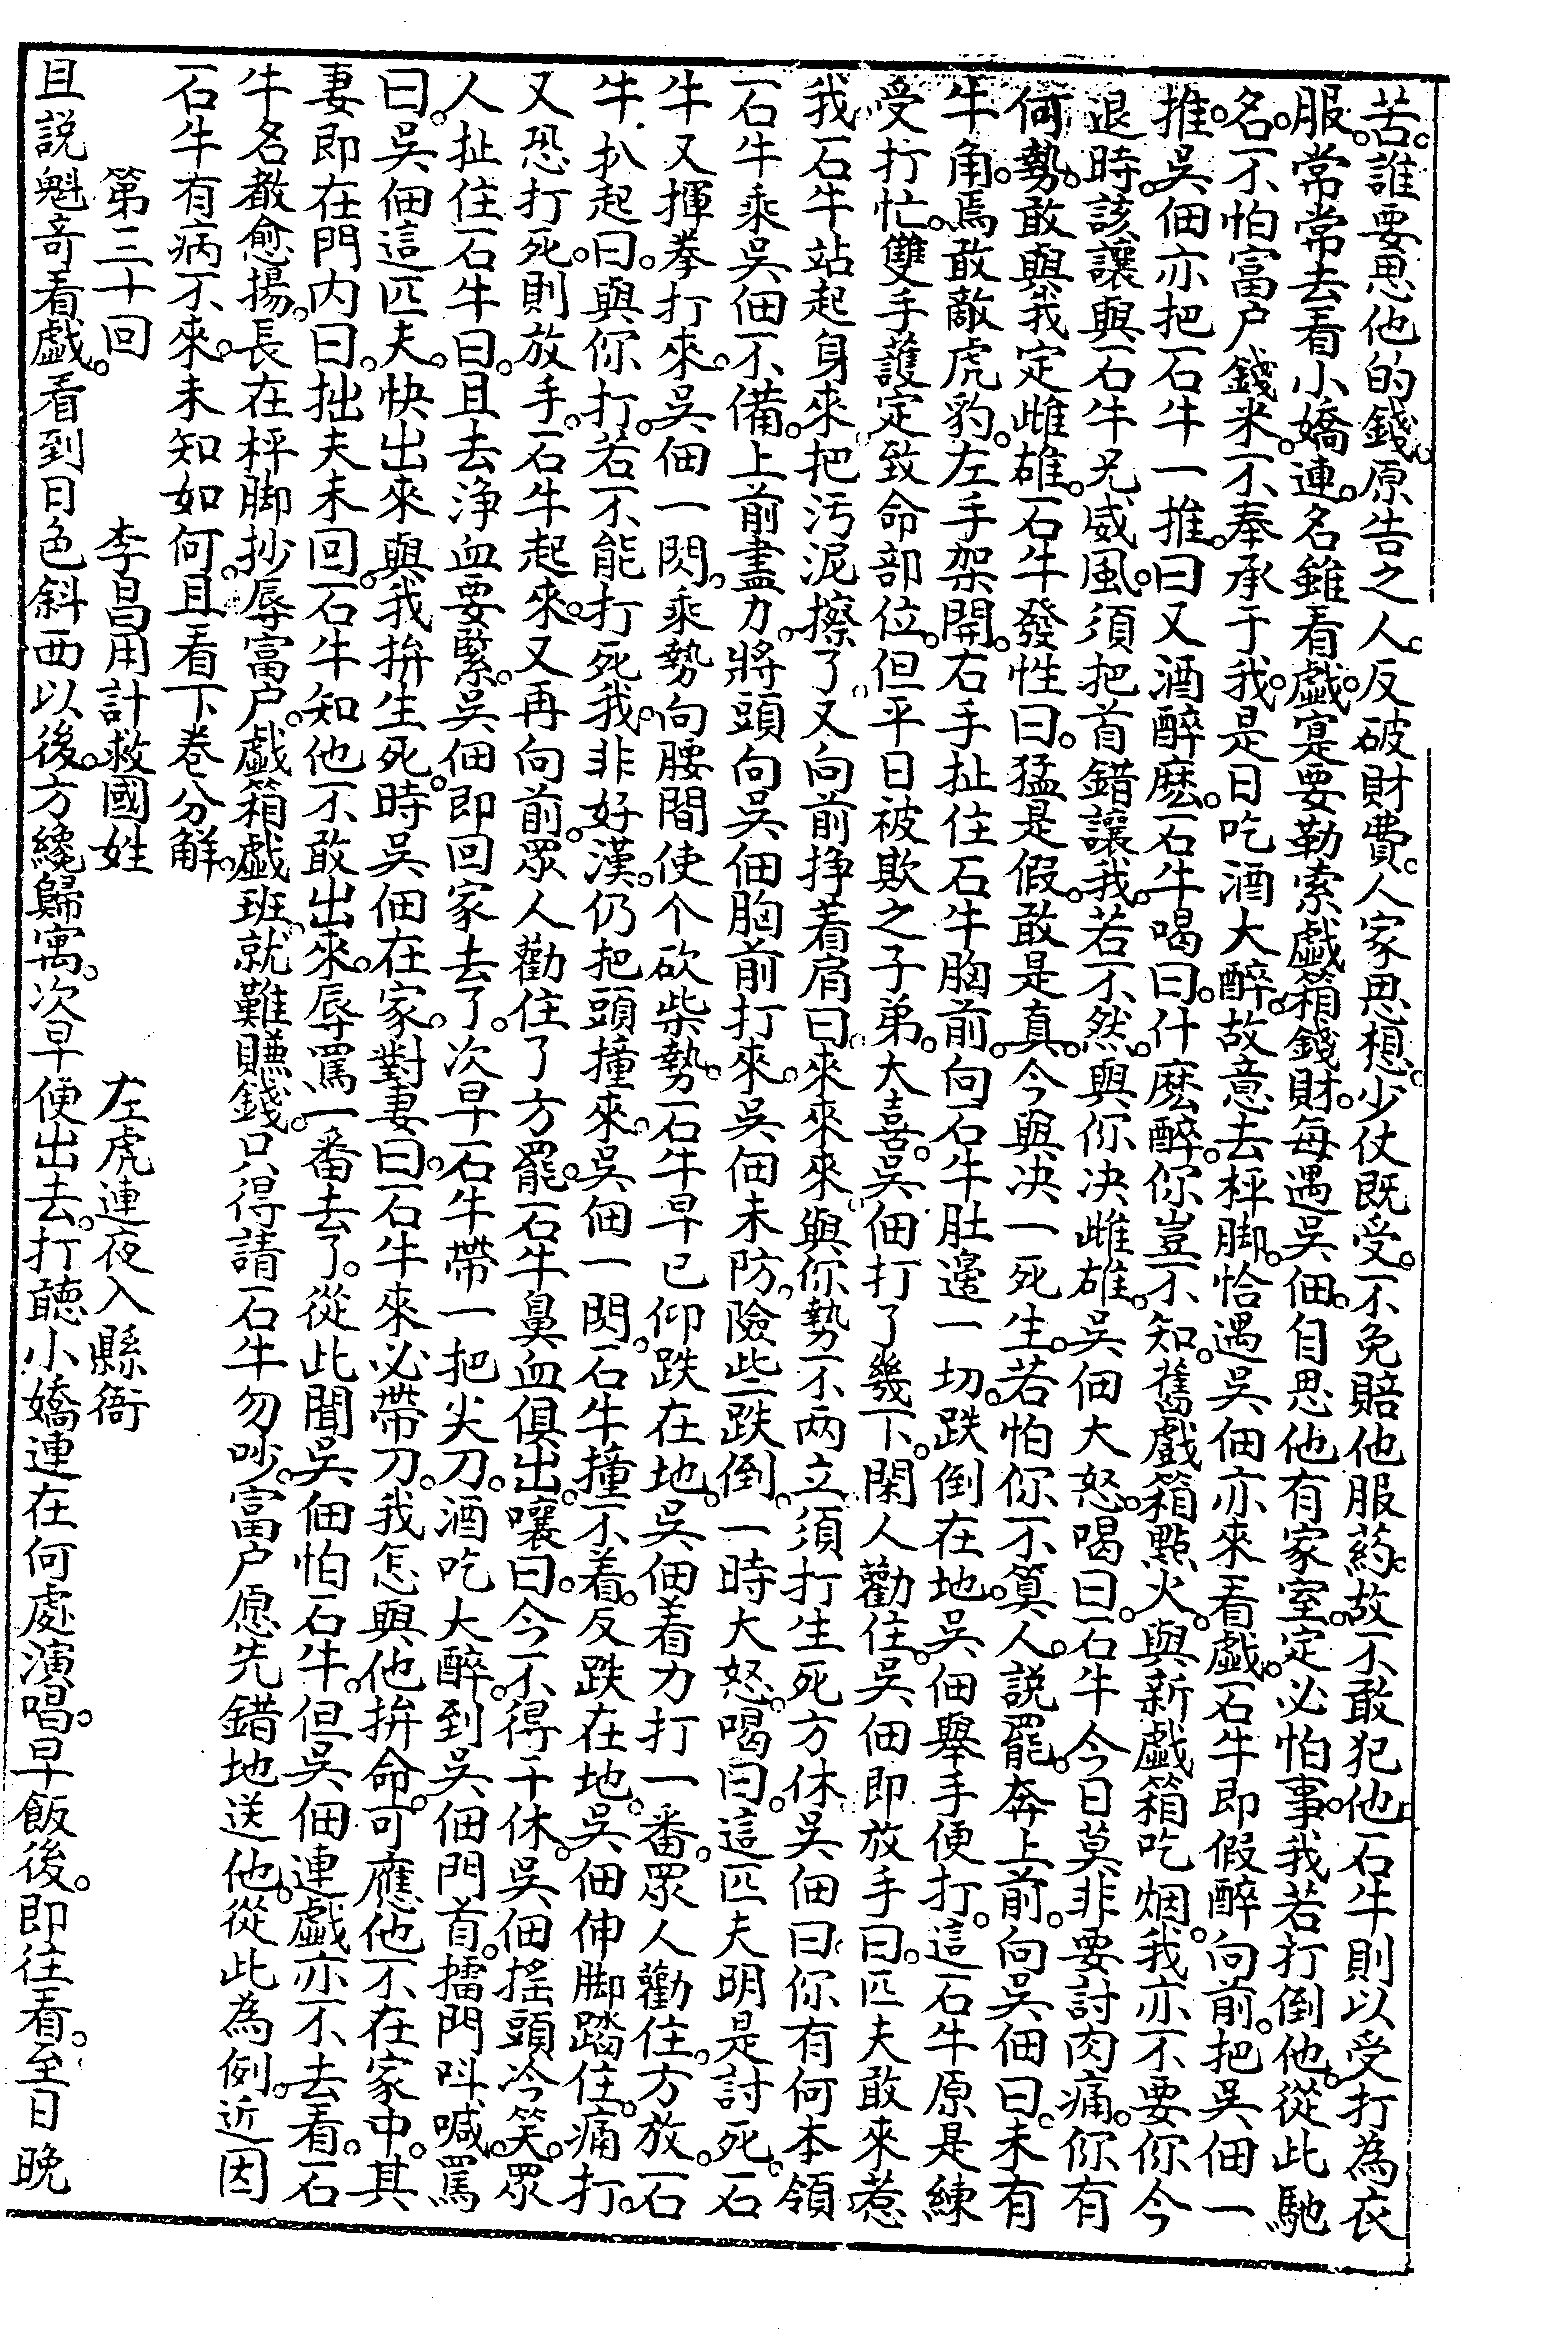 苦。誰要思他的錢。原告之人。反破財費。人家思想。少仗既受。不免賠他服葯。故不敢犯他。石牛則以受打為衣
服。常常去看小嬌。連。名雖看戯。寔要勒索戯箱錢財。每遇吳佃。自思他有家室。定必怕事。我若打倒他。從此馳
名。不怕富户錢米。不奉承于我。是日吃酒大醉。故意去枰脚。恰遇吳佃亦來看戯。石牛即假醉向前。把吳佃一
推。吳佃亦把石牛一推。曰又酒醉麽。石牛喝曰。什麽醉。你豈不知。舊戲箱點火。與新戯箱吃烟。我亦不要你今
退時。該讓與石牛兄威風。須把首錯讓我。若不然。與你决雌雄。吳佃大怒。喝曰。石牛今日莫非要討肉痛。你有
何勢。敢與我定雌雄。石牛發性曰。猛是假。敢是真。今與决一死生。若怕你不算人。説罷。奔上前。向吳佃曰。未有
牛角。焉敢敵虎豹。左手架開。右手扯住石牛胸前。向石牛肚邉一切。跌倒在地。吳佃舉手便打。這石牛原是練
受打忙。雙手護定致命部位。但平日被欺之子弟。大喜。吳佃打了幾下。閑人勸住。吳佃即放手曰。匹夫敢來惹
我。石牛站起身來。把污泥擦了。又向前挣着肩曰。來來來。與你勢不两立。須打生死方休。吳佃曰。你有何本領
石牛乘吳佃不備。上前盡力。將頭向吳佃胸前打來。吳佃未防。險些跌倒。一時大怒。喝曰。這匹夫明是討死。石
牛又揮拳打來。吳佃一閃。乘勢向腰間使个砍柴勢。石牛早已仰跌在地。吳佃着力打一番。眾人勸住。方放。石
牛扒起。曰。與你打。若不能打死我。非好漢。仍把頭撞來。吳佃一閃。石牛撞不着。反跌在地。吳佃伸脚踏住。痛打。
又恐打死。則放手。石牛起來。又再向前。眾人勸住了方罷。石牛鼻血俱出。嚷曰。今不得干休。吳佃搖頭冷笑。眾
人扯住石牛曰。且去浄血要緊。吳佃即回家去了。次早石牛帶一把尖刀。酒吃大醉。到吳佃門首。擂門呌喊。罵
曰。吳佃這匹夫。快出來與我拚生死。時吳佃在家。對妻曰。石牛來必帶刀。我怎與他拚命。可應他不在家中。其
妻即在門内曰。拙夫未回。石牛知他不敢出來。辱罵一番去了。從此聞吳佃怕石牛。但吳佃連戯亦不去看。石
牛名教愈揚。長在枰脚抄辱富户。戯箱戯班。就難賺錢。只得請石牛勿吵。富户愿先錯地送他。從此為例。近因
石牛有病不來。未知如何。且看下卷分解。
第三十回　李昌用計救國姓　左虎連夜入縣衙
且説魁竒看戯。看到日色斜西以後。方纔歸寓。次早便出去。打聽小嬌連在何處演唱。早飯後。即往看。至日晚